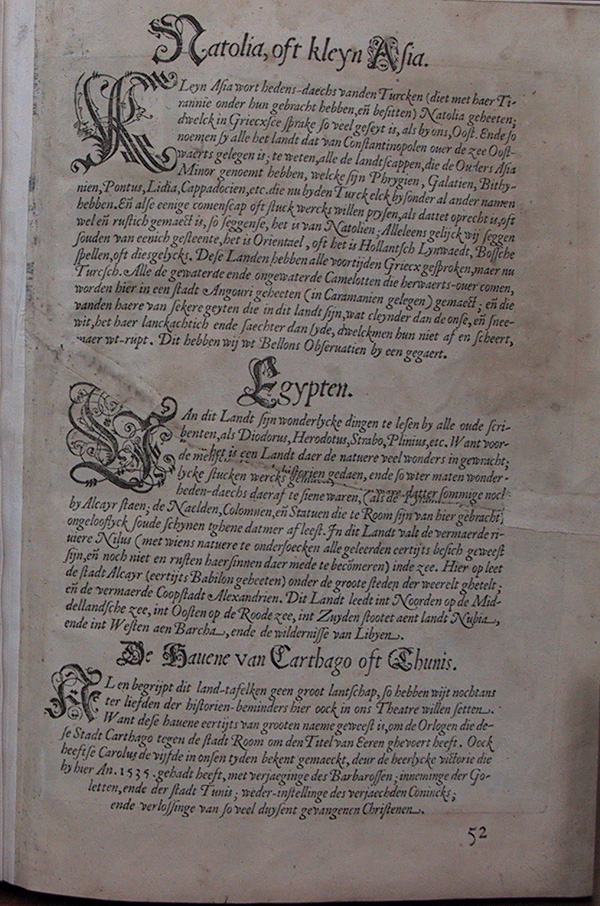 Natolia, oft kleyn Asia.
KLeyn Asia wort hedens-daechs vanden Turcken (diet met haer Ti-
rannie onder hun gebracht hebben, en̄ besitten) Natolia geheeten;
dwelck in Griecxsce sprake so veel geseyt is, als by ons, Oost. Ende so
noemen sy alle het landt dat van Constantinopolen ouer de zee Oost-
waerts gelegen is; te weten, alle de landtscappen, die de Ouders Asia
Minor genoemt hebben, welcke sijn Phrygien, Galatien, Bithy-
nien, Pontus, Lidia, Cappadocien, etc. die nu by den Turck elck bysonder al ander namen
hebben. En̄ alse eenige comenscap oft stuck wercks willen prysen, als dattet oprecht is, oft
wel en̄ rustich gemaect is, so seggense, het is van Natolien; Alleleens gelijck wij seggen
souden van eenich gesteente, het is Orientael, oft het is Hollantsch Lynwaedt, Bossche
spellen, oft diesgelycks. Dese Landen hebben alle voortijden Griecx gesproken, maer nu
Turcsch. Alle de gewaterde ende ongewaterde Camelotten die herwaerts-ouer comen,
worden hier in een stadt Angouri geheeten (in Caramanien gelegen) gemaect; en̄ die
vanden haere van sekere geyten die in dit landt sijn, wat cleynder dan de onse, en̄ snee-
wit, het haer lanckachtich ende saechter dan syde, dwelckmen hun niet af en scheert,
maer wt-rupt. Dit hebben wij wt Bellons Obseruatien by een gegaert.
Egypten.
VAn dit Landt sijn wonderlycke dingen te lesen by alle oude scri-
benten, als Diodorus, Herodotus, Strabo, Plinius, etc. Want voor-
de menst is een Landt daer de natuere veel wonders in gewracht,
lycke stucken wercks historien gedaen, ende so wter maten wonder-
heden-daechs daeraf te siene waren, (als de sommige noch
by Alcayr staen; de Naelden, Colomnen, en̄ Statuen die te Room sijn van hier gebracht)
ongelooflyck soude schynen tghene datmer af leest. In dit Landt valt de vermaerde ri-
uiere Nilus (met wiens natuere te ondersoecken alle geleerden eertijts besich geweest
sijn, en̄ noch niet en rusten haer sinnen daer mede te becomeren) inde zee. Hier op leet
de stadt Alcayr (eertijts Babilon geheeten) onder de groote steden der weerelt ghetelt;
en̄ de vermaerde Coopstadt Alexandrien. Dit Landt leedt int Noorden op de Mid-
dellandsche zee, int Oosten op de Roode zee, int Zuyden stootet aent landt Nubia,
ende int Westen aen Barcha, ende de wildernisse van Libyen.
De Hauene van Carthago oft Thunis.
AL en begrijpt dit land-tafelken geen groot lantschap, so hebben wijt nochtans
ter liefden der historien-beminders hier oock in ons Theatre willen setten.
Want dese hauene eertijts van grooten naeme geweest is, om de Orlogen die de-
se Stadt Carthago tegen de stadt Room om den Titel van Eeren ghevoert heeft. Oock
heeftse Carolus de vijfde in onsen tyden bekent gemaeckt, deur de heerlycke victorie die
hy hier An. 1535. gehadt heeft, met verjaeginge des Barbarossen; inneminge der Go-
letten, ende der stadt Tunis; weder-instellinge des verjaechden Conincks;
ende verlossinge van so veel duysent gevangenen Christenen.
52